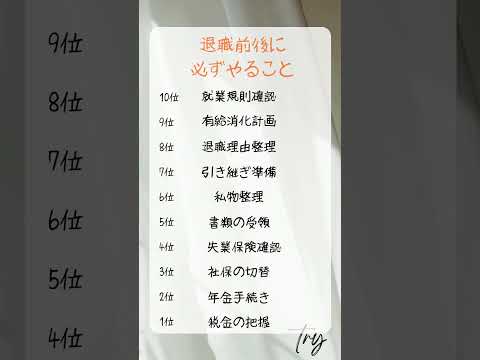 退職前後に
必ずやること
10位 就業規則確認
9位 有給消化計画
8位 退職理由整理
7位 引き継ぎ準備
6位 私物整理
5位 書類の受領
4位 失業保険確認
3位 社保の切替
2位 年金手続き
1位 税金の把握
Try
9位
8位
7位
6位
5位
4位